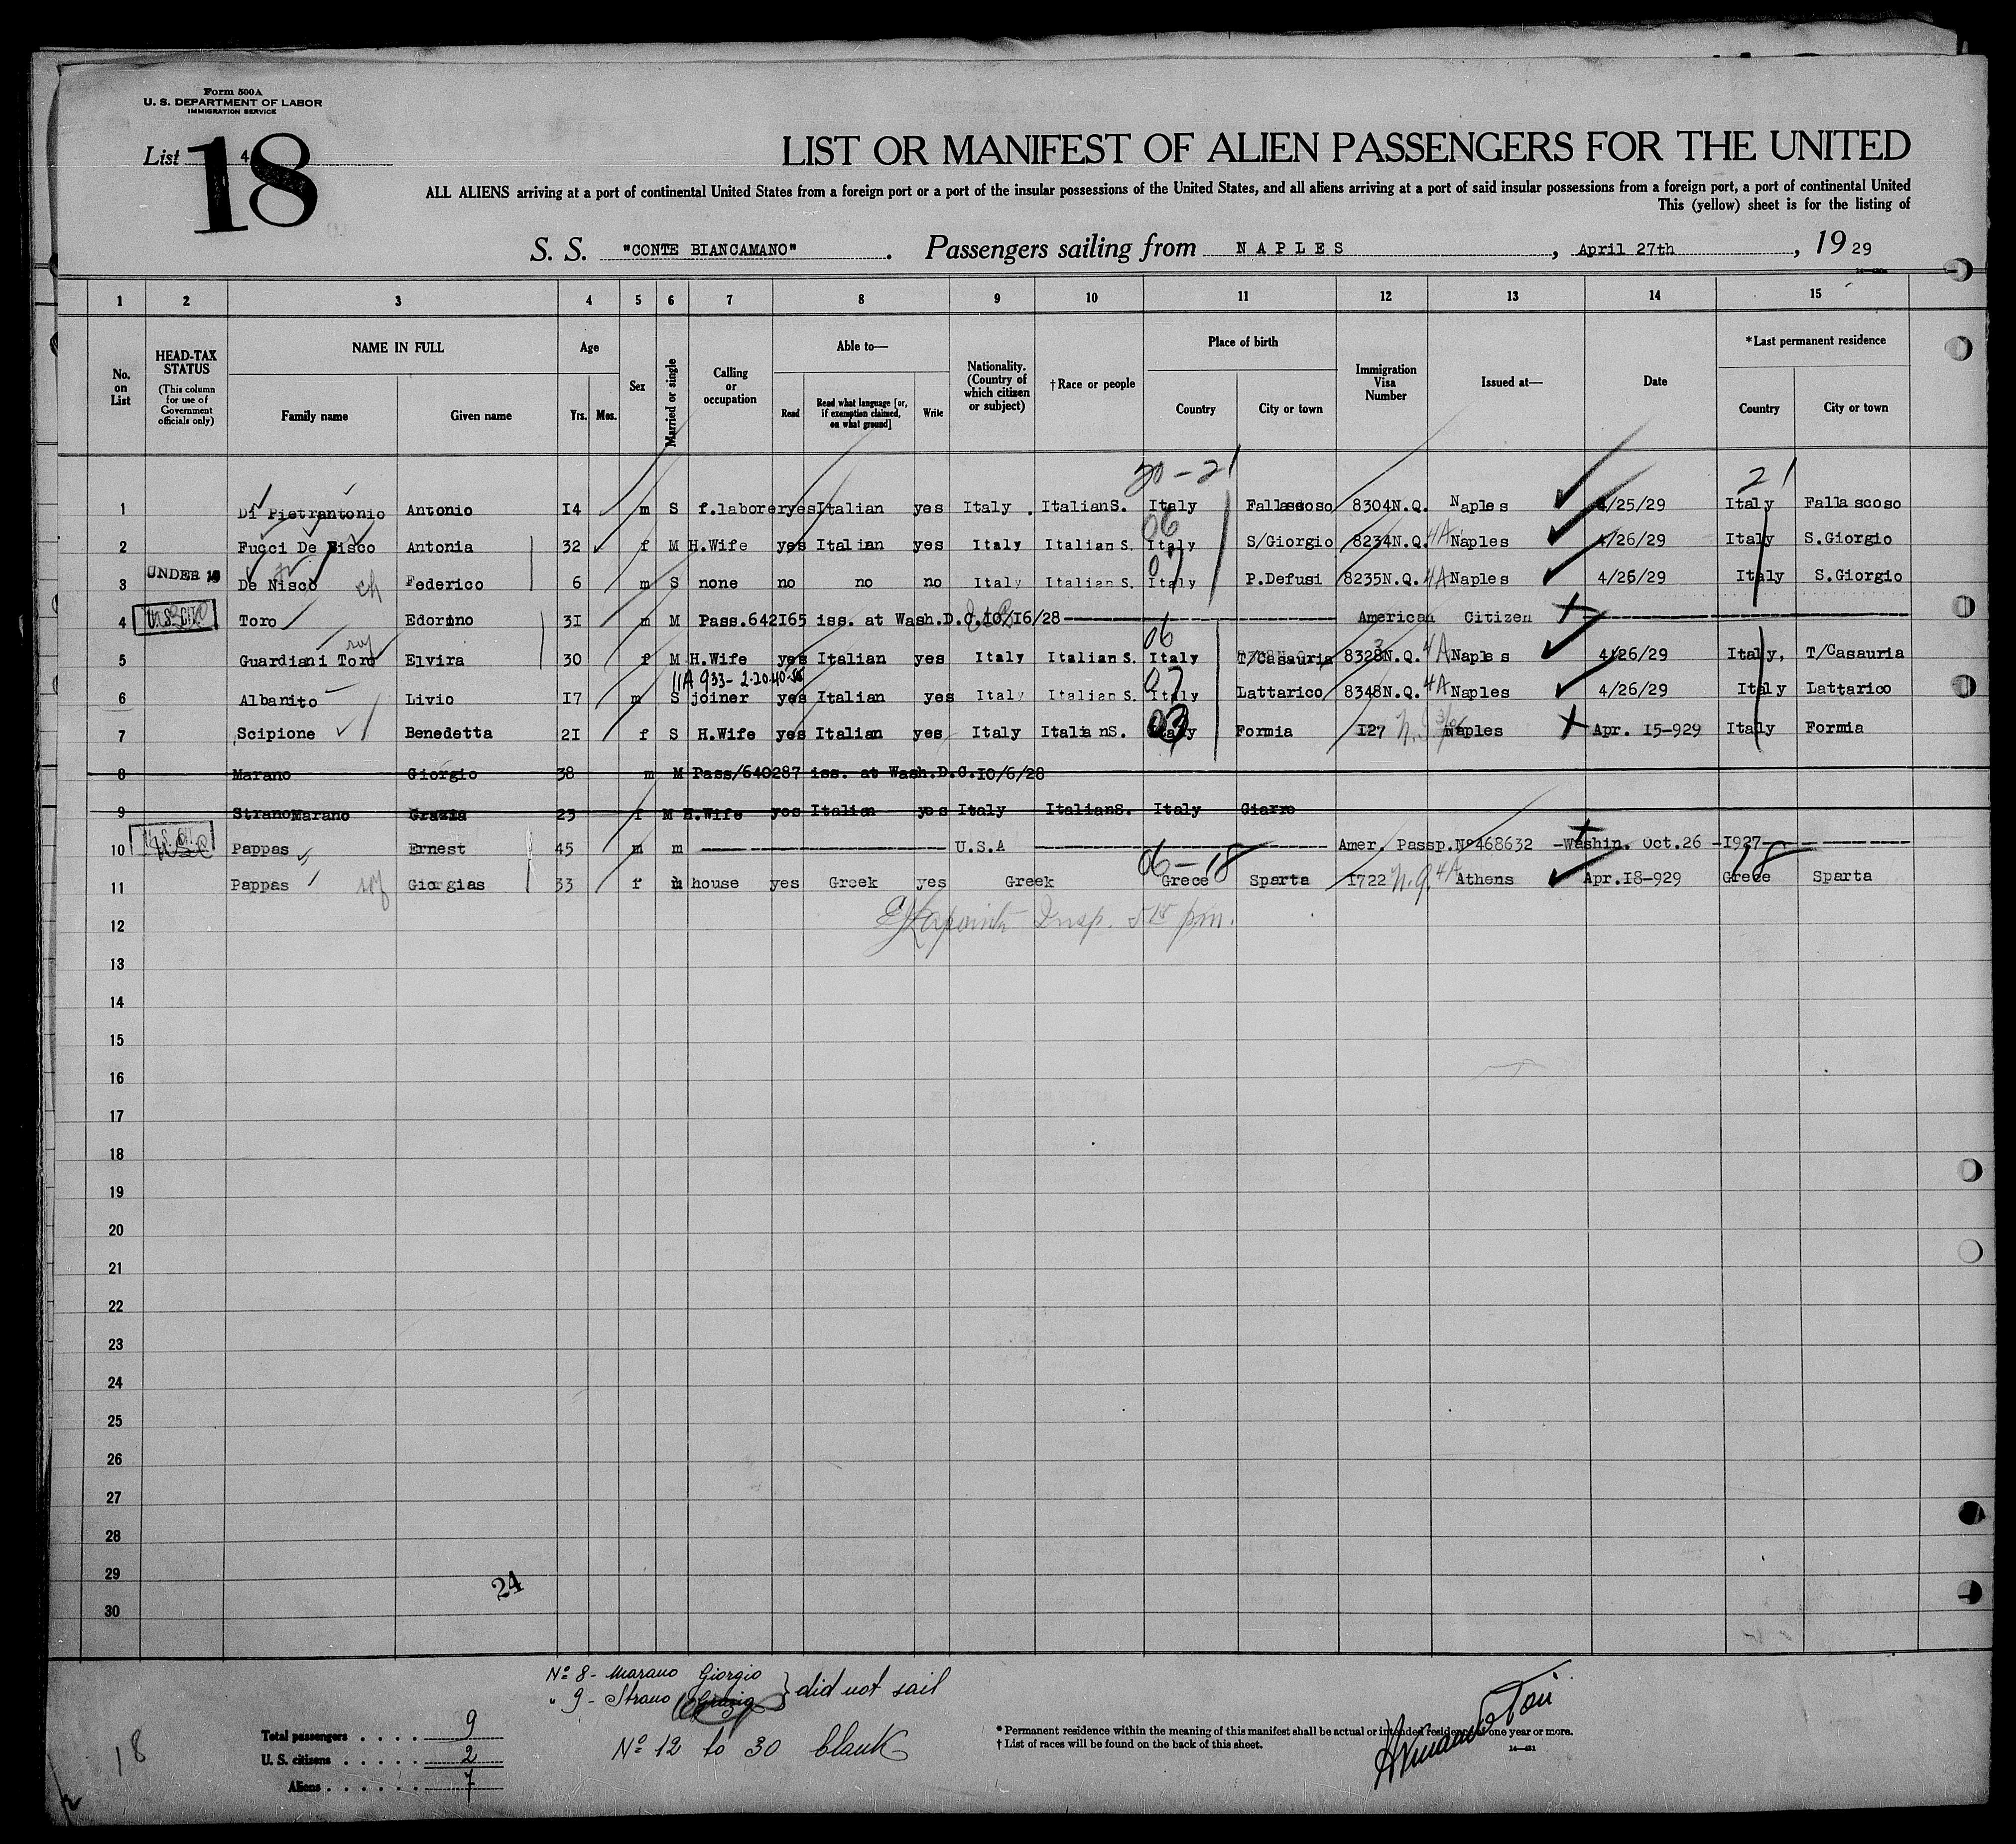 Form 500A
U. S. DEPARTMENT OF LABOR
IMMIGRATION SERVICE
List 4
18
LIST OR MANIFEST OF ALIEN PASSENGERS FOR THE UNITED
ALL ALIENS arriving at a port of continental United States from a foreign port or a port of the insular possessions of the United States, and all aliens arriving at a port of said insular possessions from a foreign port, a port of continental United
This (yellow) sheet is for the listing of
S. S. "CONTE BIANCAMANO". Passengers sailing from NAPLES, April 27th, 1929
1 2 3 4 5 6 7 8 9 10 11 12 13 14 15
No. on List
HEAD-TAX STATUS (This column for use of Government officials only)
NAME IN FULL
Family name Given name
Age
Yrs. Mos.
Sex
Married or single
Calling or occupation
Able to—
Read Read what language [or, if exemption claimed, on what ground] Write
Nationality. (Country of which citizen or subject)
†Race or people
Place of birth
Country City or town
Immigration Visa Number
Issued at—
Date
*Last permanent residence
Country City or town
20-21 21
1 Di Pietrantonio Antonio 14 m S f.laborer yes Italian yes Italy . ItalianS. Italy Fallascoso 8304N.Q. Naples 4/25/29 Italy Fallascoso
06
2 Fucci De Nisco Antonia 32 f M H.Wife yes Italian yes Italy Italian S. Italy S/Giorgio 8234N.Q. 4A Naples 4/26/29 Italy S.Giorgio
UNDER 16 07
3 De Nisco ch Federico 6 m S none no no no Italy Italian S. Italy P.Defusi 8235N.Q. 4A Naples 4/26/29 Italy S.Giorgio
4 U.S. CIT. Toro Edorino 31 m M Pass.642165 iss. at Wash.D.C.10/16/28 American Citizen
06
5 Guardiani Toro Elvira 30 f M H.Wife yes Italian yes Italy Italian S. Italy T/Casauria 8328N.Q. 3 4A Naples 4/26/29 Italy, T/Casauria
11A 933- 07
6 Albanito Livio 17 m S joiner yes Italian yes Italy Italian S. Italy Lattarico 8348N.Q. 4A Naples 4/26/29 Italy Lattarico
03
7 Scipione Benedetta 21 f S H.Wife yes Italian yes Italy ItalianS. Italy Formia 127 Naples Apr. 15-929 Italy Formia
8 Marano Giorgio 38 m M Pass/640287 iss. at Wash.D.C.10/6/28
9 StranoMarano Grazia 23 f M H.Wife yes Italian yes Italy ItalianS. Italy Giarre
10 U.S. CIT. Pappas Ernest 45 m m U.S.A Amer. Passp.Nº468632 -Washin. Oct.26 -1927-
06-18 18
11 Pappas Giorgias 33 f m house yes Greek yes Greek Grece Sparta 1722 N.Q. 4A Athens Apr.18-929 Grece Sparta
12 Insp. 515 pm.
13
14
15
16
17
18
19
20
21
22
23
24
25
26
27
28
29
30
24
Nº 8 - Marano Giorgio
" 9 - Strano Grazia } did not sail
Nº 12 to 30 blank
Total passengers . . . . 9
U. S. citizens . . . . . 2
Aliens . . . . . . 7
18
* Permanent residence within the meaning of this manifest shall be actual or intended residence of one year or more.
† List of races will be found on the back of this sheet.